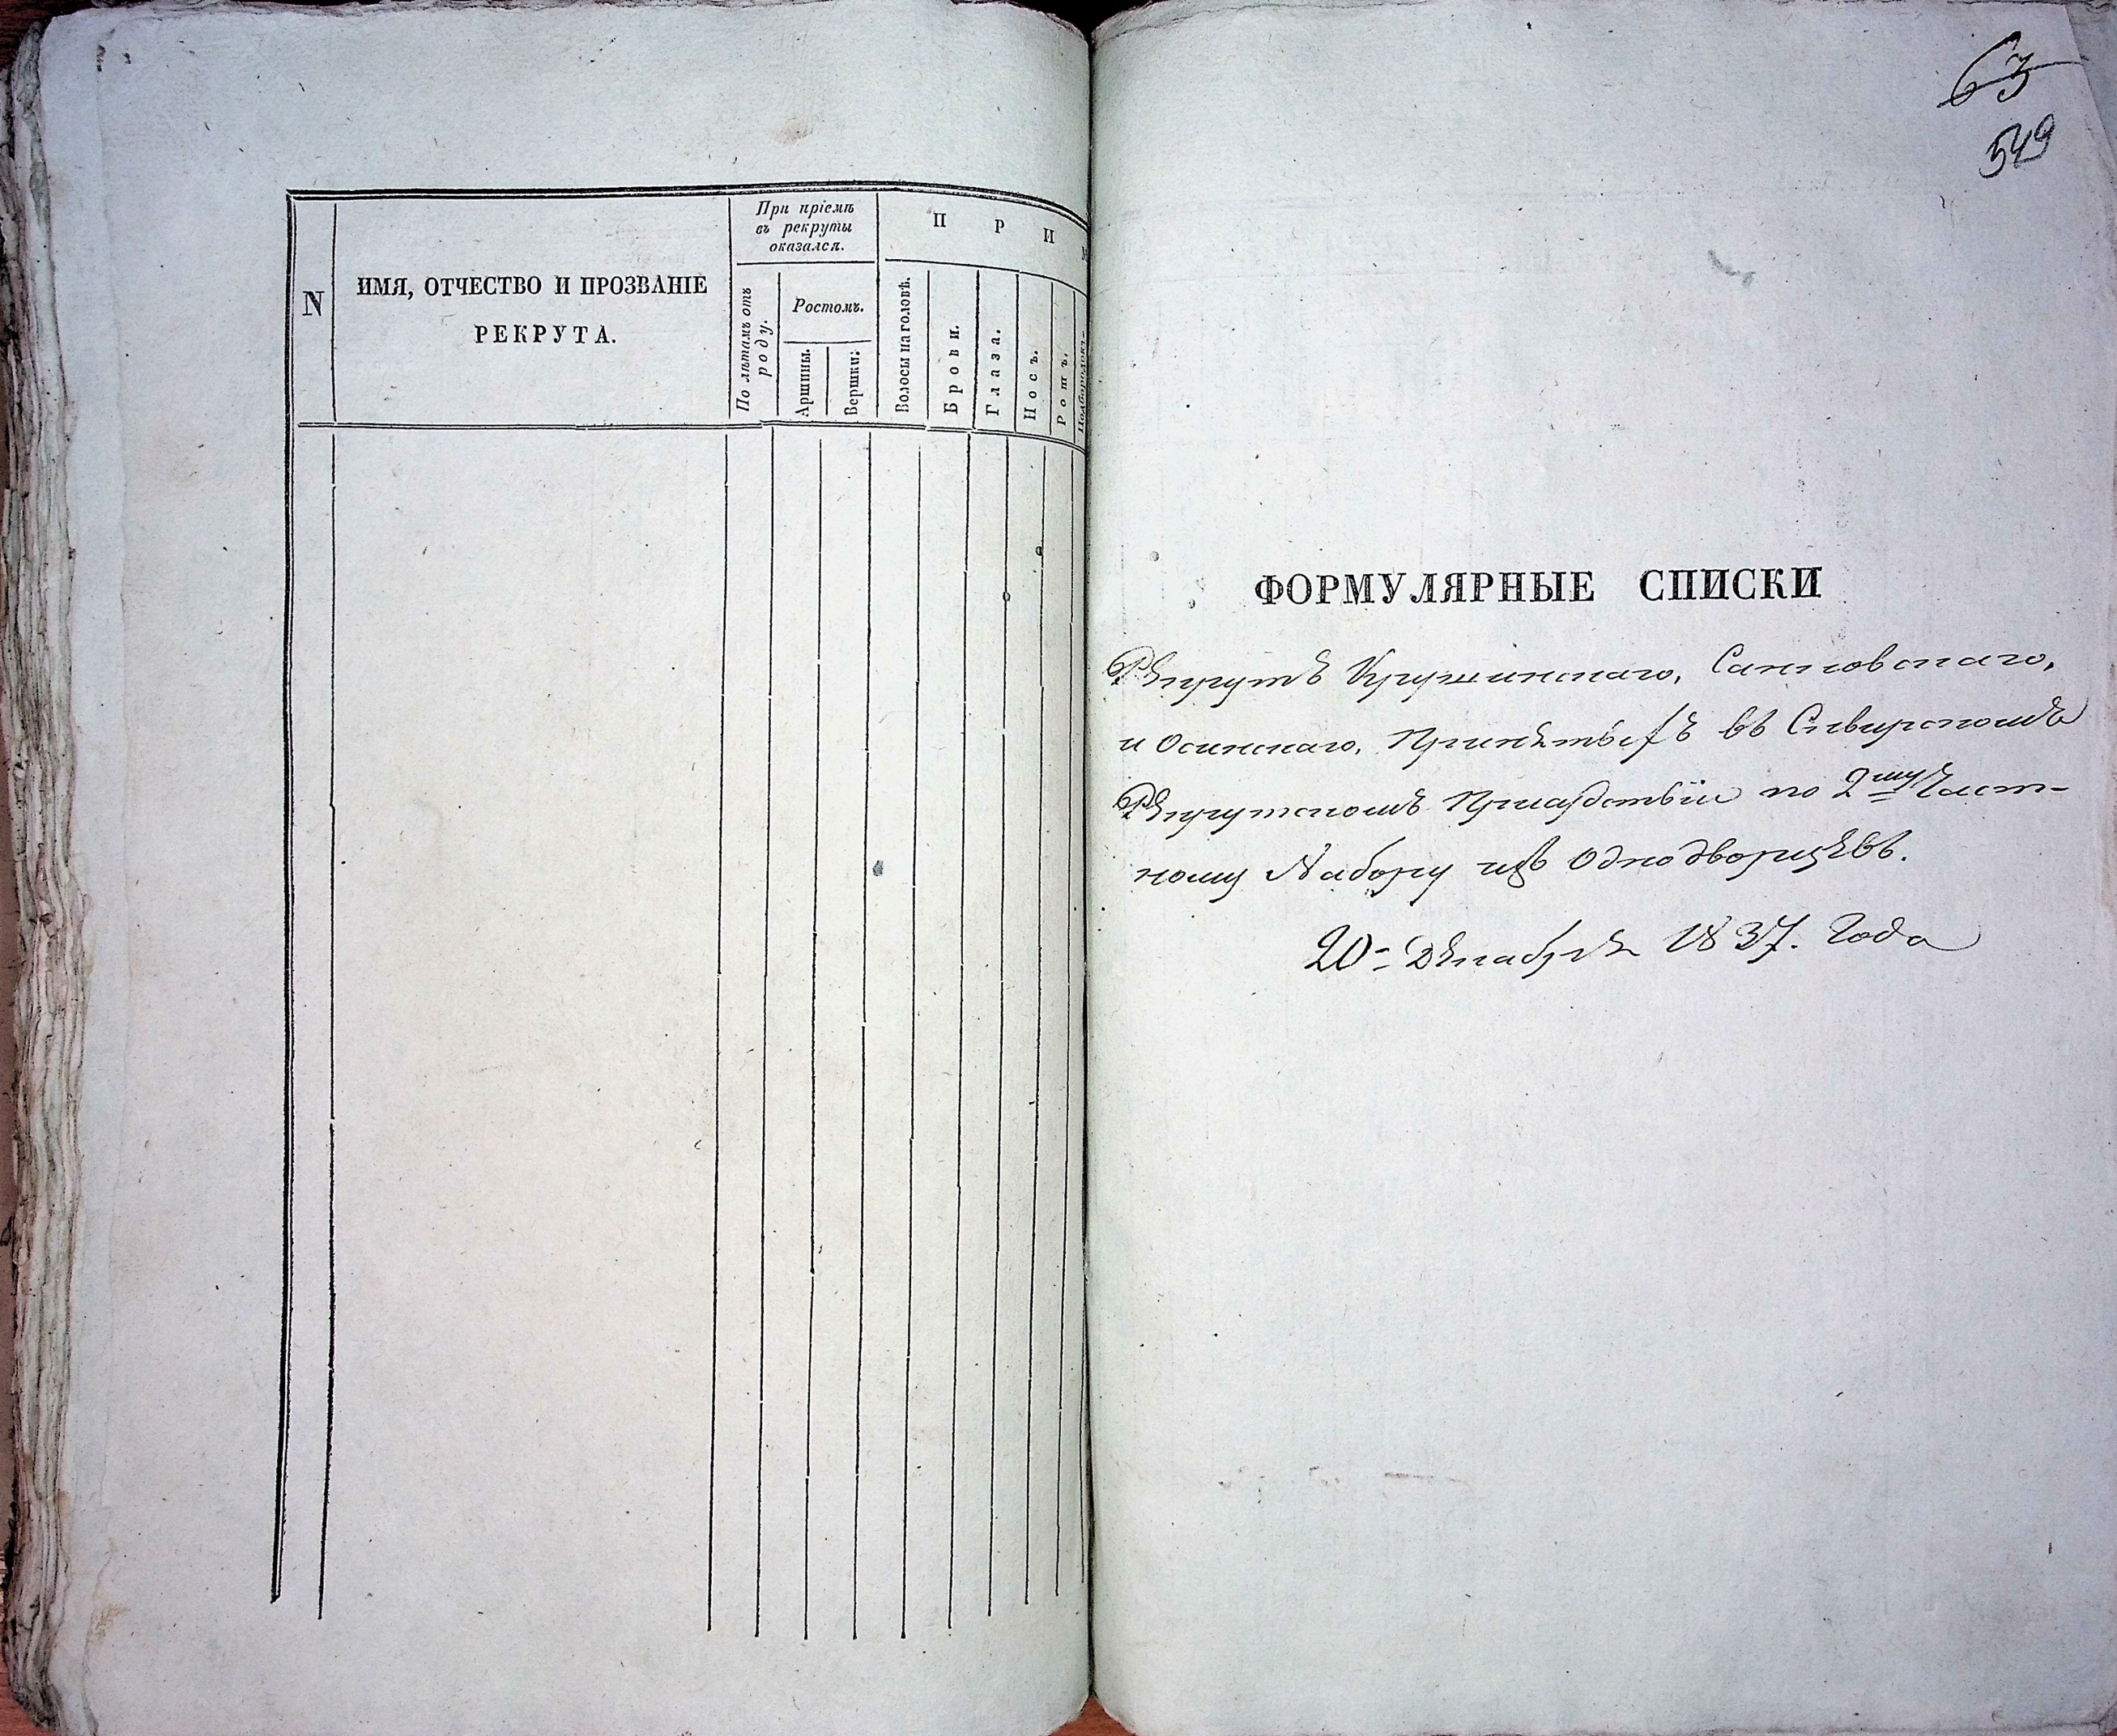 N
ИМЯ, ОТЧЕСТВО И ПРОЗВАНІЕ
РЕКРУТА.
При пріемѣ
въ рекруты
оказался.
По лѣтамъ отъ
роду.
Ростомъ.
Аршины.
Вершки.
П Р И М
Волосы на головѣ.
Брови.
Глаза.
Носъ.
Ротъ.
Подбородокъ.
63
549
ФОРМУЛЯРНЫЕ СПИСКИ
Рекрутъ
и Осинскаго, Принятыхъ въ Сквирскомъ
Рекрутскомъ Присудствіи по 2му Част-
ному Набору изъ Однодворцевъ.
20 Декабря 1837. Года